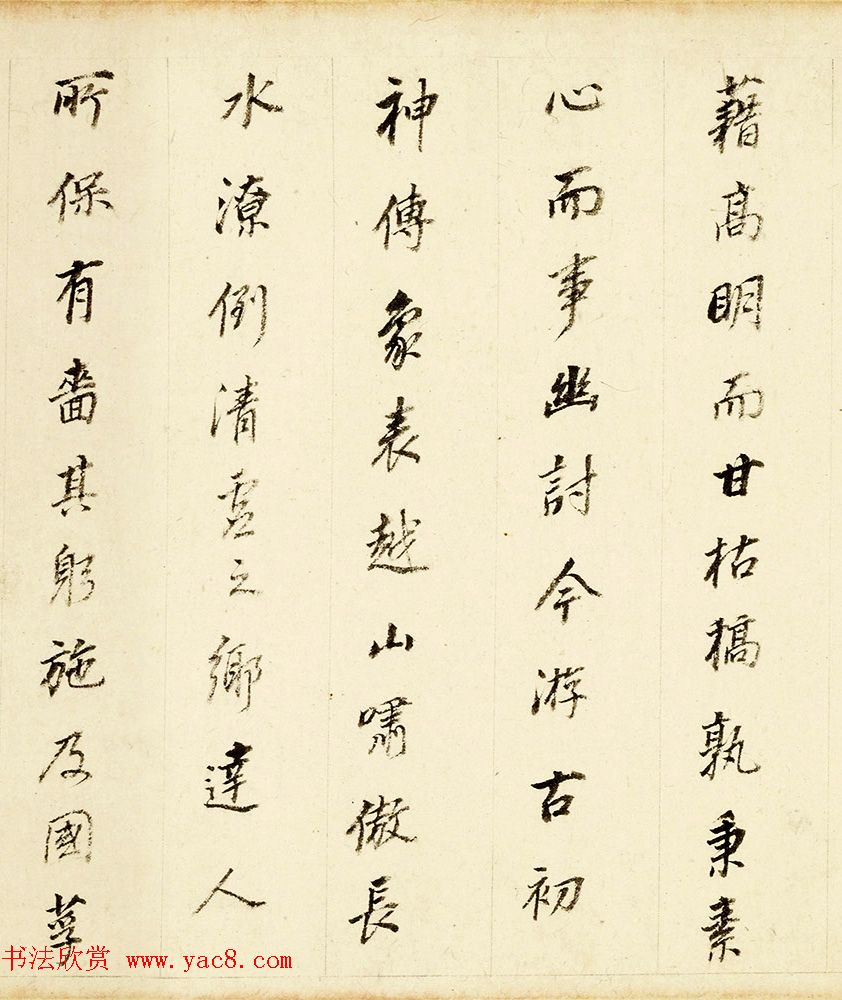 藉高明而甘枯槁孰秉素
心而事幽討今游古初
神傳象表越山嘯傲長
水潦倒清虛之鄉達人
所保有嗇其躬施及國
书法欣赏 www.yac8.com